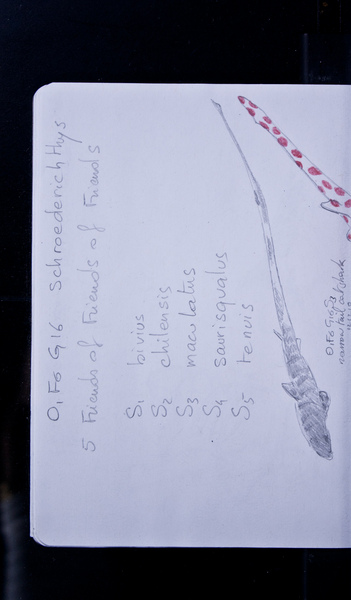 O1 F6 G16 Schroederichthys
5 Friends of Friends of Friends
S1 bivius
S2 chilensis
S3 maculatus
S4 saurisqualus
S5 tenuis
O1 F6 G16 S1
narrowtail catshark